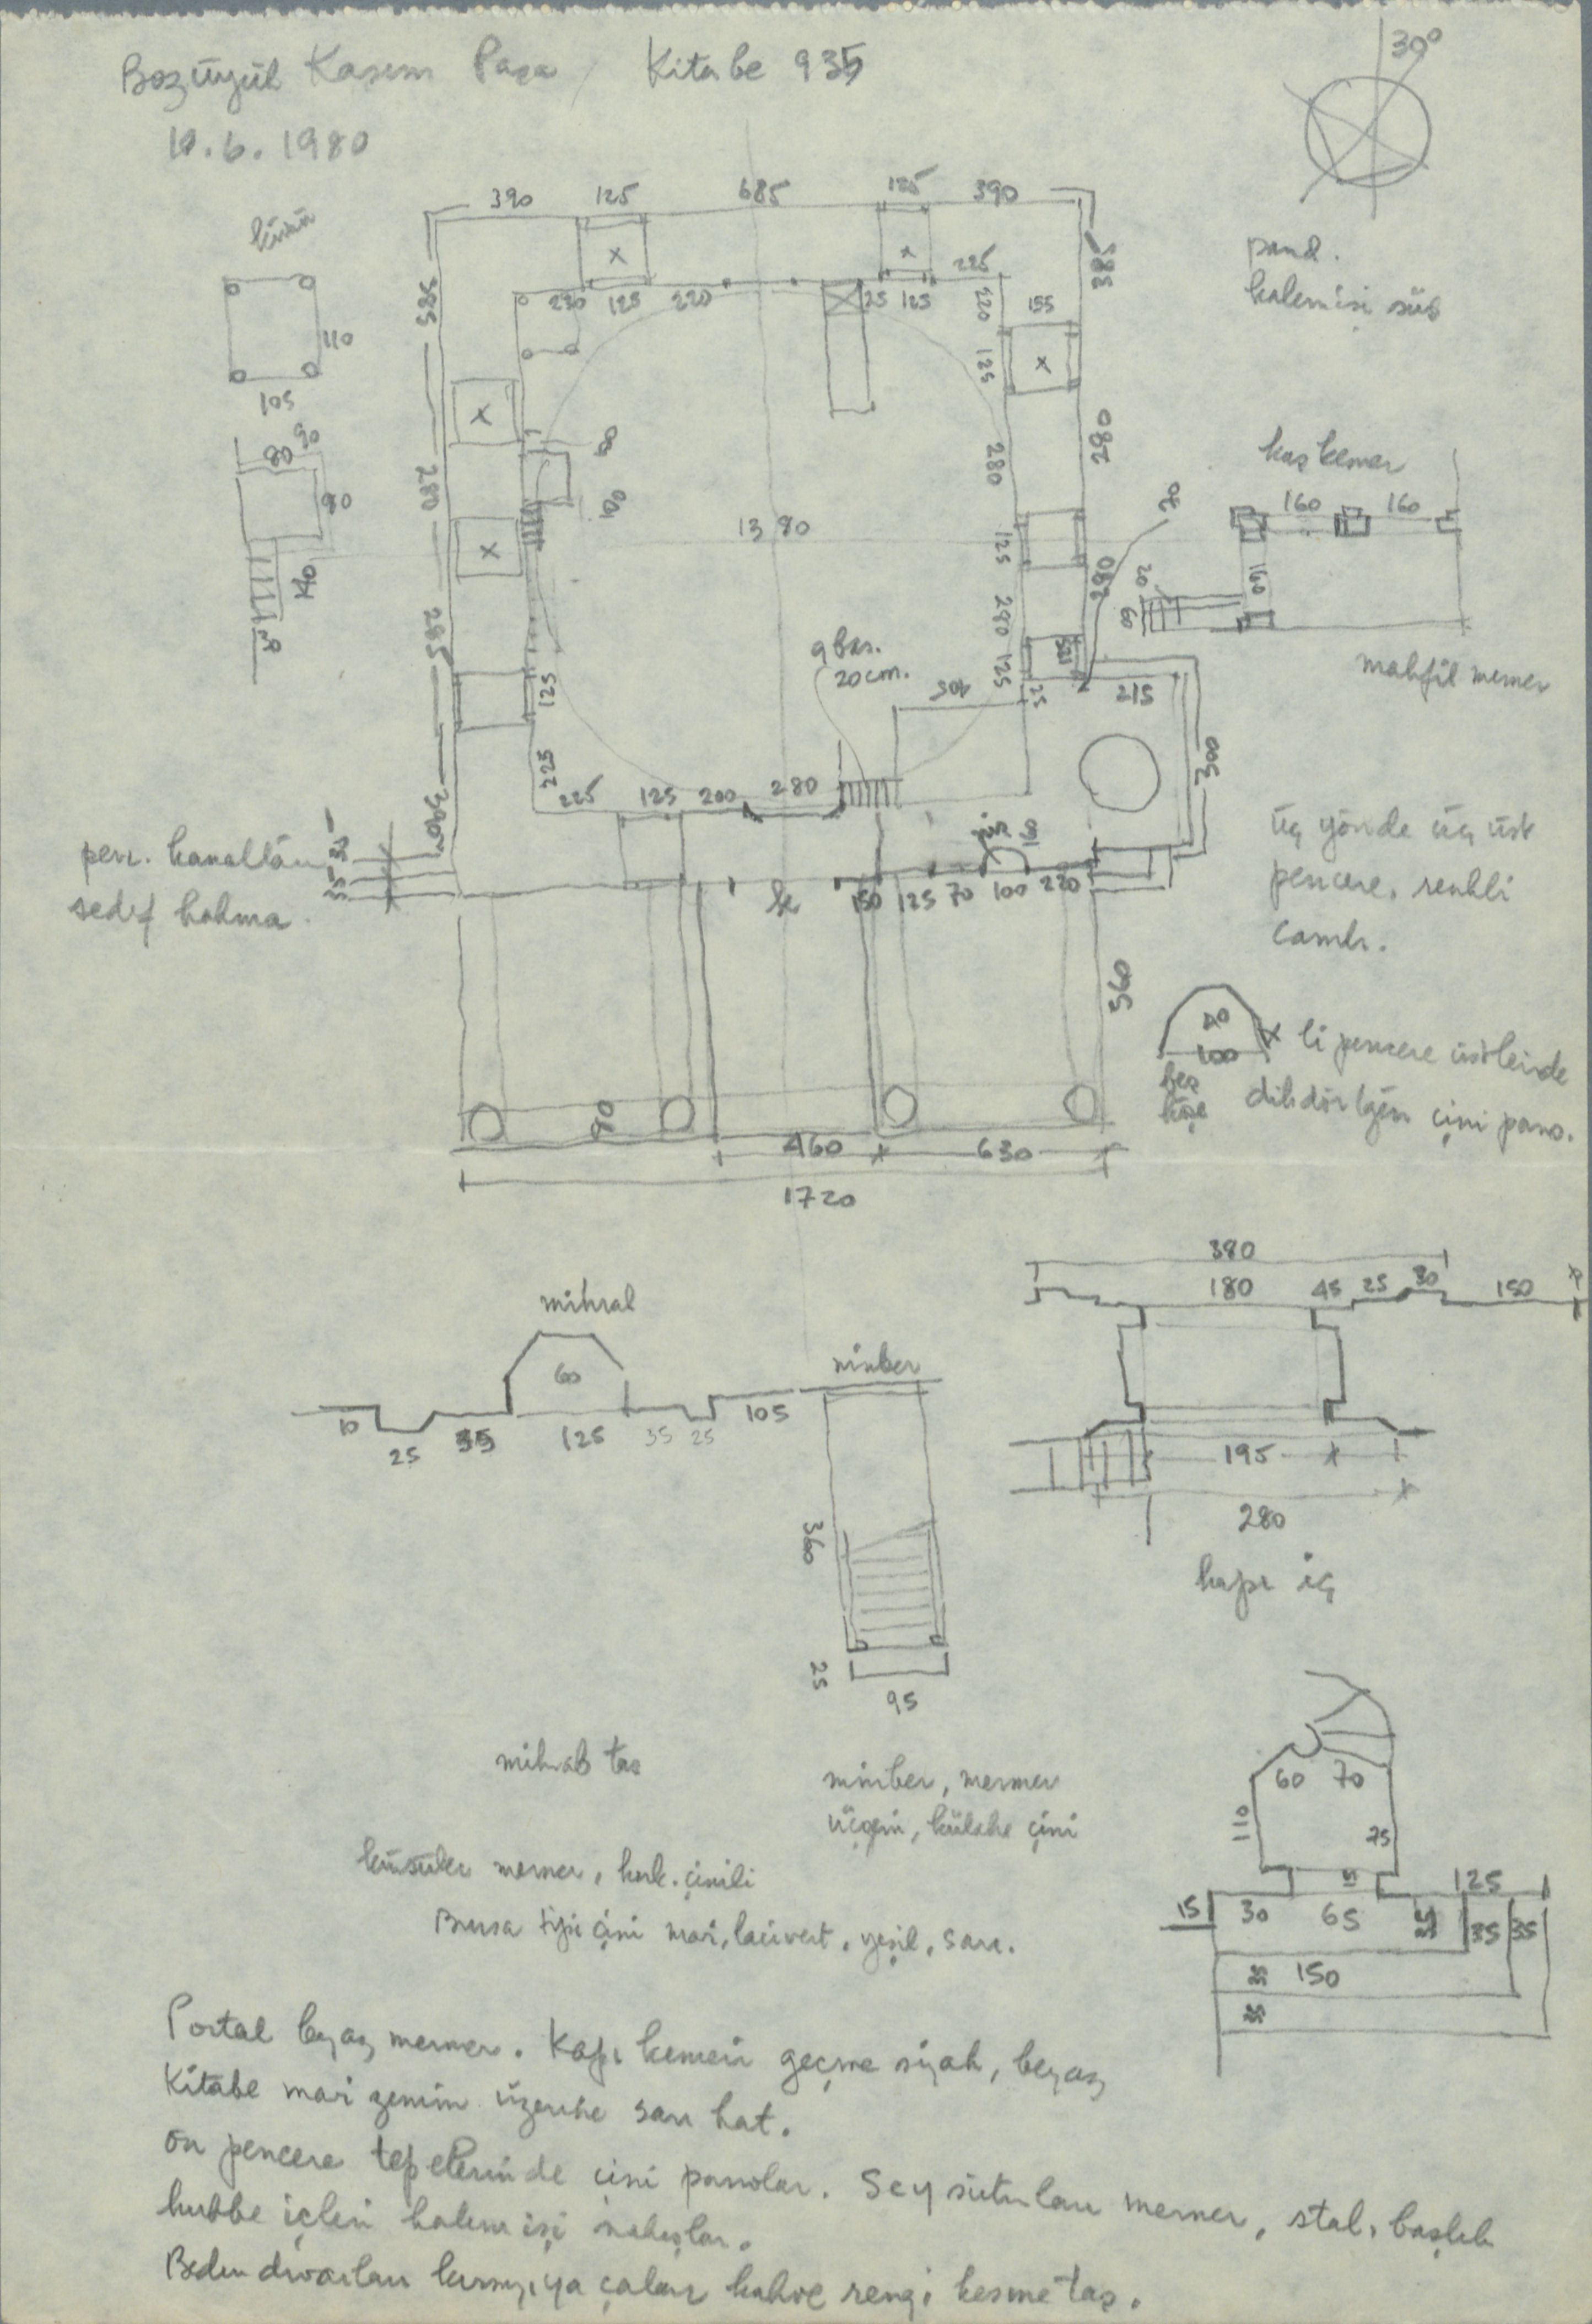 Bozüyük Kasım Paşa / Kitabe 935
10.6.1980
30°
390 125 685 125 390
kürsü
pand.
kalemişi süs
385
385
220 125 220
25 125
225
220
155
125
110
105
280
280
280
kaş kemer
160 160
160
90
80
90
140
80
100
1380
125
280
280
20
60
20
mahfil mermer
285
9 bas.
20 cm.
105
125
25
215
300
125
225
225 125 200 280
390
penc. kanatları
sedef kakma.
150 125 70 100 220
üç yönde üç üst
pencere, renkli
camlı.
560
40
100
beş
köşe
x li pencere üstlerinde
dikdörtgen çini pano.
90
460 630
1720
380
180 45 25 30 150
mihrab
60
minber
10 25 35 125 35 25 105
195
280
kapı iç
360
25
95
mihrab taş
minber, mermer
üçgen, külahı çini
60 70
110
75
15
125
15 30 65 35 35
35 150
35
kürsüler mermer, kork. çinili
Bursa tipi çini mavi, lacivert, yeşil, sarı.
Portal beyaz mermer. Kapı kemeri geçme siyah, beyaz
Kitabe mavi zemin üzerine sarı hat.
ön pencere tepelerinde çini panolar. Scy sütunları mermer, stal. başlık
kubbe içleri kalem işi nakışlar.
Beden duvarları kırmızıya çalar kahve rengi kesme taş.